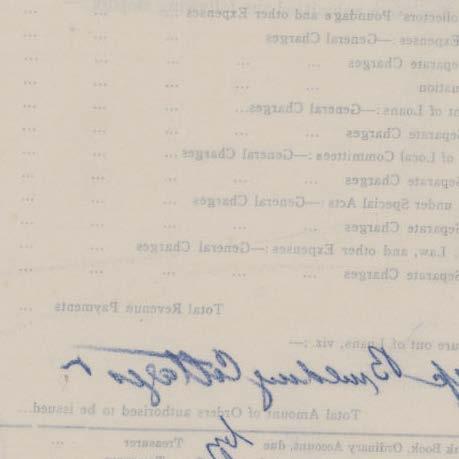 ollectors' Poundage and other Expenses ... ... ...
Expenses:—General Charges ... ... ...
Separate Charges ... ... ... ...
uation ... ... ... ... ...
nt of Loans:—General Charges... ... ...
Separate Charges ... ... ...
of Local Committees:—General Charges ... ... ...
Separate Charges ... ... ... ...
under Special Acts:—General Charges ... ... ...
Separate Charges ... ... ... ...
Law, and other Expenses:—General Charges ... ...
Separate Charges ... ... ... ...
Total Revenue Payments ...
ure out of Loans, viz.:—
Building Cottages
Total Amount of Orders authorised to be issued...
nk Book, Ordinary Account, due Treasurer ...